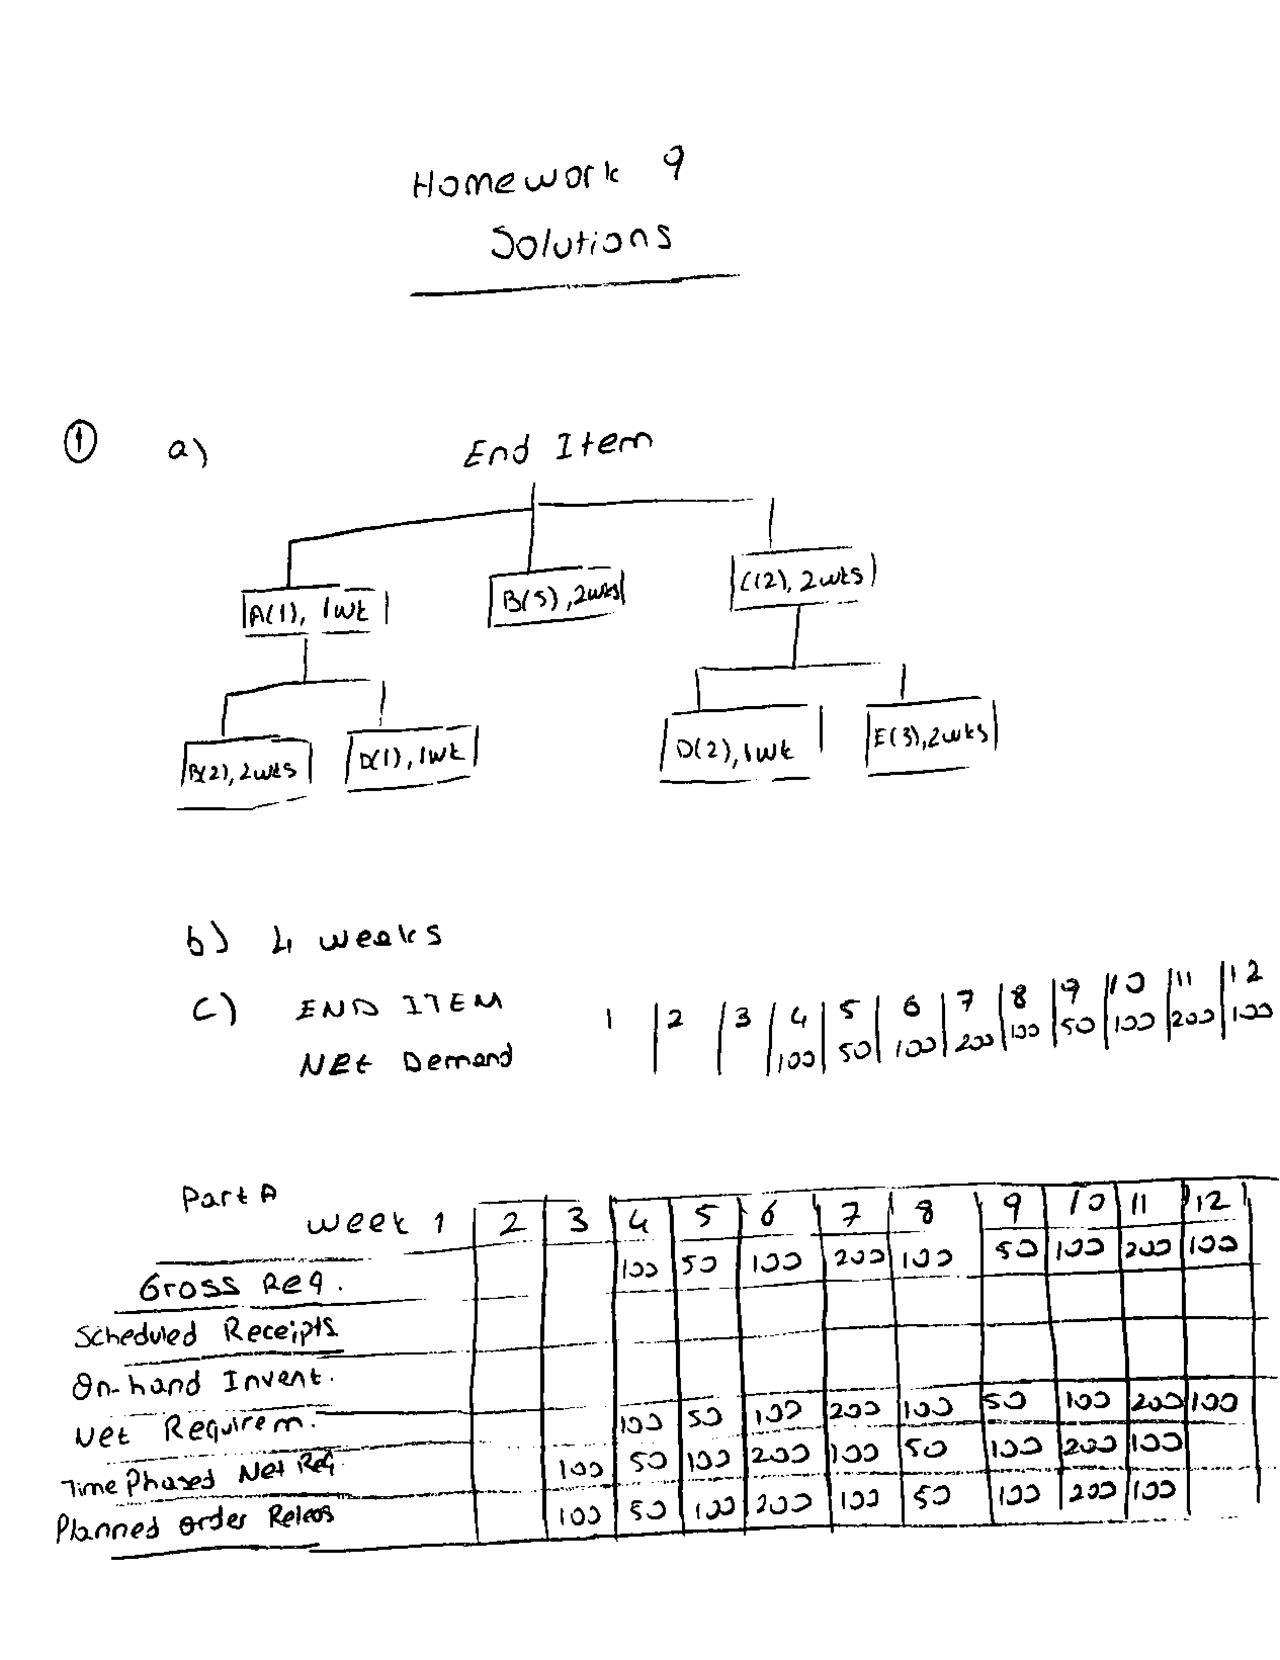 Homework 9
Solutions
① a) End Item
A(1), 1wk B(5), 2wks C(2), 2wks
B(2), 2wks D(1), 1wk D(2), 1wk E(3), 2wks
b) 4 weeks
c) END ITEM 1 2 3 4 5 6 7 8 9 10 11 12
Net Demand 100 50 100 200 100 50 100 200 100
Part A
week 1 2 3 4 5 6 7 8 9 10 11 12
Gross Req. 100 50 100 200 100 50 100 200 100
Scheduled Receipts
On-hand Invent.
Net Requirem. 100 50 100 200 100 50 100 200 100
Time Phased Net Req 100 50 100 200 100 50 100 200 100
Planned Order Releas 100 50 100 200 100 50 100 200 100